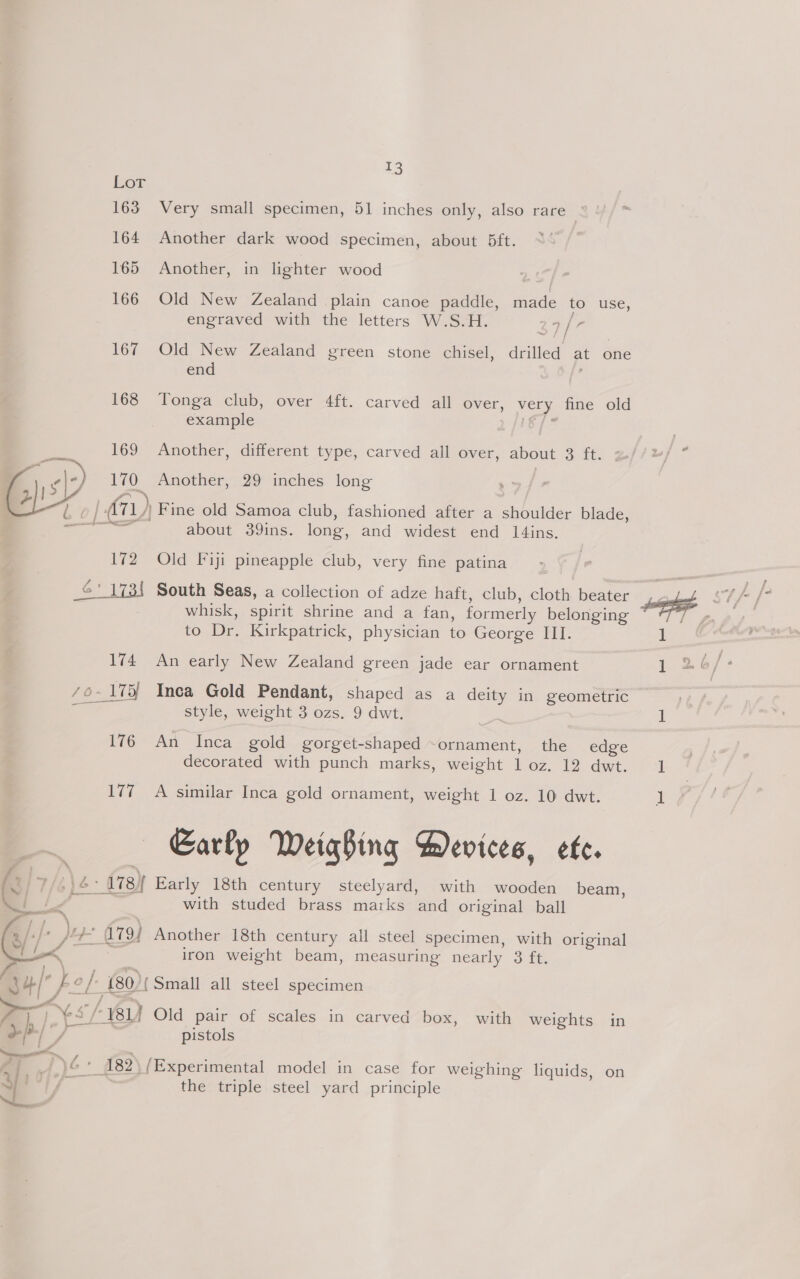 13
Lot
163 Very small specimen, 51 inches only, also rare
164 Another dark wood specimen, about 5ft.
165 Another, in lighter wood
166 Old New Zealand plain canoe paddle, made to use,
engraved with the letters W.S.H. 27/-
167 Old New Zealand green stone chisel, drilled at one
end
168 Tonga club, over 4ft. carved all over, very fine old
example
169 Another, different type, carved all over, about 3 ft.
170 Another, 29 inches long
171 Fine old Samoa club, fashioned after a shoulder blade,
about 39ins. long, and widest end 14ins.
172 Old Fiji pineapple club, very fine patina
173 South Seas, a collection of adze haft, club, cloth beater
whisk, spirit shrine and a fan, formerly belonging
to Dr. Kirkpatrick, physician to George III. 1
174 An early New Zealand green jade ear ornament 1 26/-
175 Inca Gold Pendant, shaped as a deity in geometric
style, weight 3 ozs. 9 dwt. 1
176 An Inca gold gorget-shaped ornament, the edge
decorated with punch marks, weight 1 oz. 12 dwt. 1
177 A similar Inca gold ornament, weight 1 oz. 10 dwt. 1
Early Weighing Devices, etc.
178 Early 18th century steelyard, with wooden beam,
with studed brass marks and original ball
179 Another 18th century all steel specimen, with original
iron weight beam, measuring nearly 3 ft.
180 Small all steel specimen
181 Old pair of scales in carved box, with weights in
pistols
182 Experimental model in case for weighing liquids, on
the triple steel yard principle